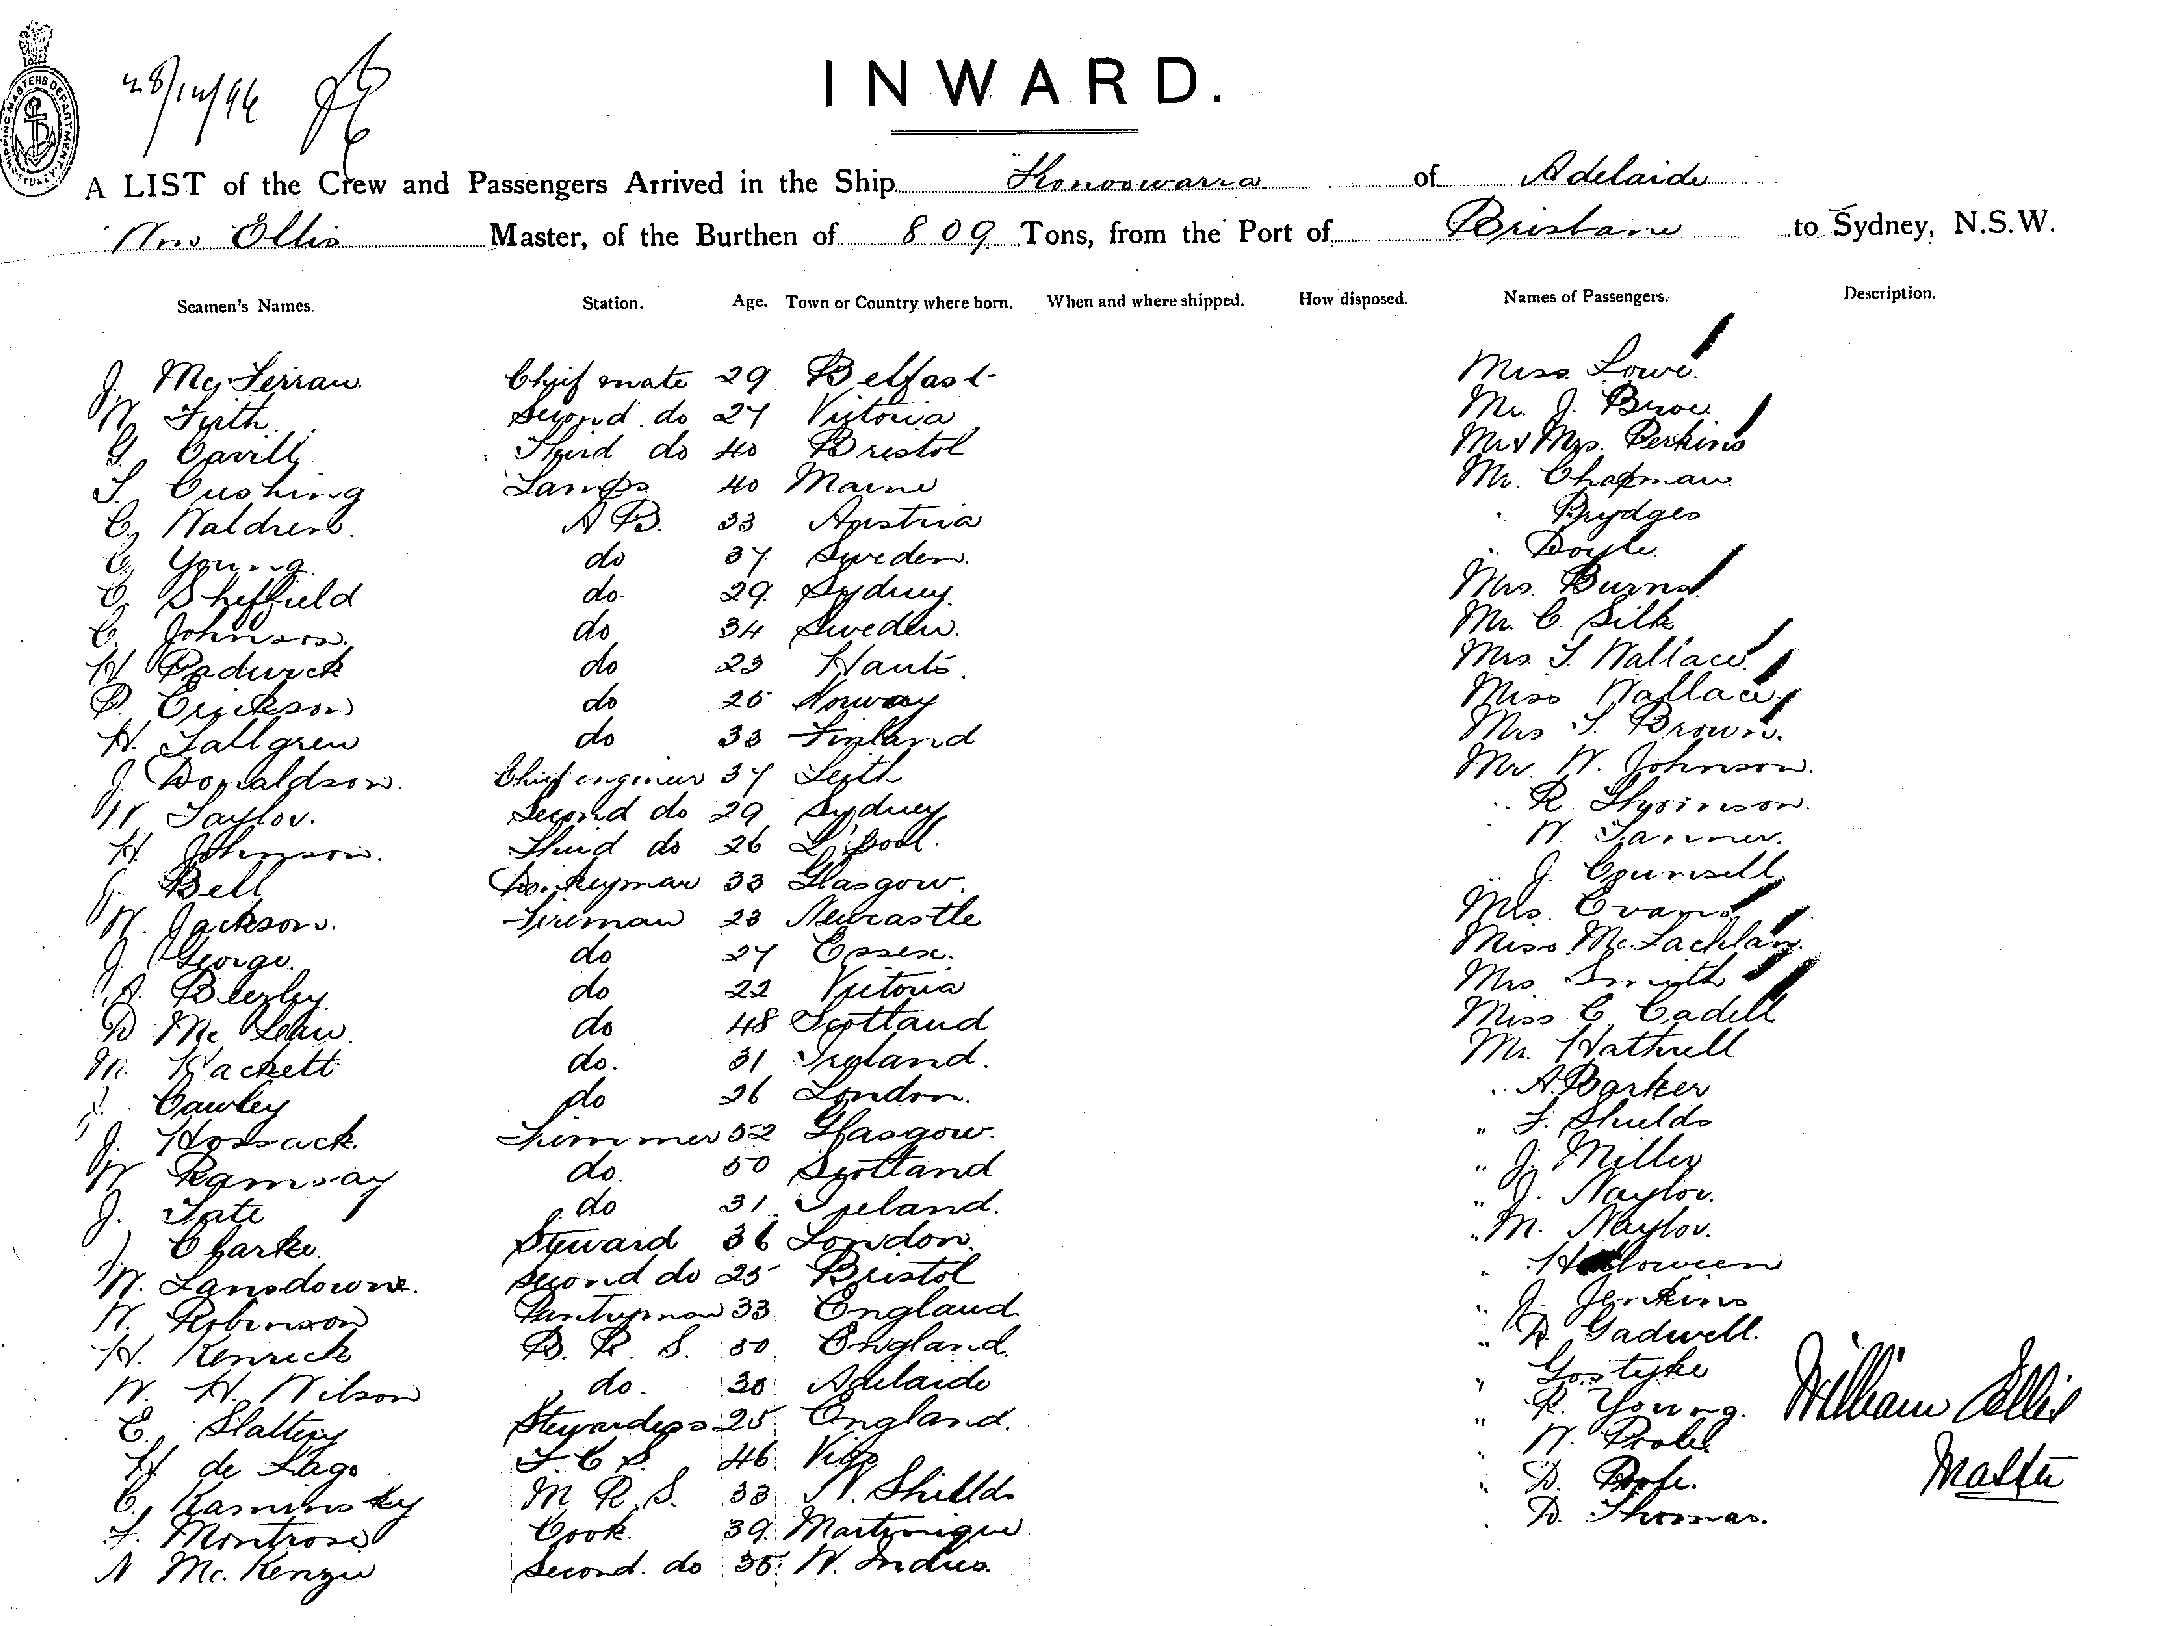 28/12/96
INWARD.
A LIST of the Crew and Passengers Arrived in the Ship Konoowarra of Adelaide
Wm Ellis Master, of the Burthen of 809 Tons, from the Port of Brisbane to Sydney, N.S.W.
Seamen's Names. Station. Age. Town or Country where born. When and where shipped. How disposed. Names of Passengers. Description.
J. Chief mate 29 Belfast Miss Lowe
W Firth Second do 27 Victoria Mr. J.
G Cavill Third do 40 Bristol Mr & Mrs. Perkins
S. Cushing Lamps 40 Maine Mr. Chapman
C. Waldren. A B. 33 Austria " Brydges
C. Young. do 37 Sweden. " Doyle.
C. Sheffield do 29 Sydney. Mrs. Burns
C. Johnson. do 34 Sweden. Mr. C. Silk
H Padwick do 23 Hants. Mrs. T. Wallace.
P. Erickson do 25 Norway Miss Wallace
H. Tallgren do 33 Finland Mrs T. Brown.
J. Donaldson. Chief engineer 37 Leith Mr. W. Johnson.
W Taylor. Second do 29 Sydney " R.
H. Johnson. Third do 26 L'pool. W. Tanner.
Bell Donkeyman 33 Glasgow. " J. Counsell
W. Jackson. Fireman 23 Newcastle Mrs. Evans
J. George. do 27 Essex. Miss McLachlan.
A. Beezley do 22 Victoria Mrs Smith
D Mc Lean. do 48 Scotland Miss C Cadell
M. Hackett do. 31 Ireland. Mr. Hathrell
J. Cawley do 26 London. " A. Barker
J. Hossack. Trimmer 52 Glasgow. " F. Shields
W Ramsay do. 50 Scotland " J. Miller
J. Tate do 31 Ireland. " J. Naylor.
Clarke. Steward 36 London. " M. Naylor.
W. Lansdowne. Second do 25 Bristol "
W. Robinson Pantryman 33 England " J. Jenkins
H. Kenrick B. R. S. 30 England. " D. Gadwell.
W. H. Wilson do. 30 Adelaide "
E. Slattery Stewardess 25 England. " R. Young.
H de Lago F C S. 46 Vigo " W.
C. Kaminsky M. R. S. 33 N. Shields " D.
F. Montrose Cook. 39 Martinique " D. Thomas.
N Mc. Kenzie Second. do 35 W. Indies.
William Ellis
Master